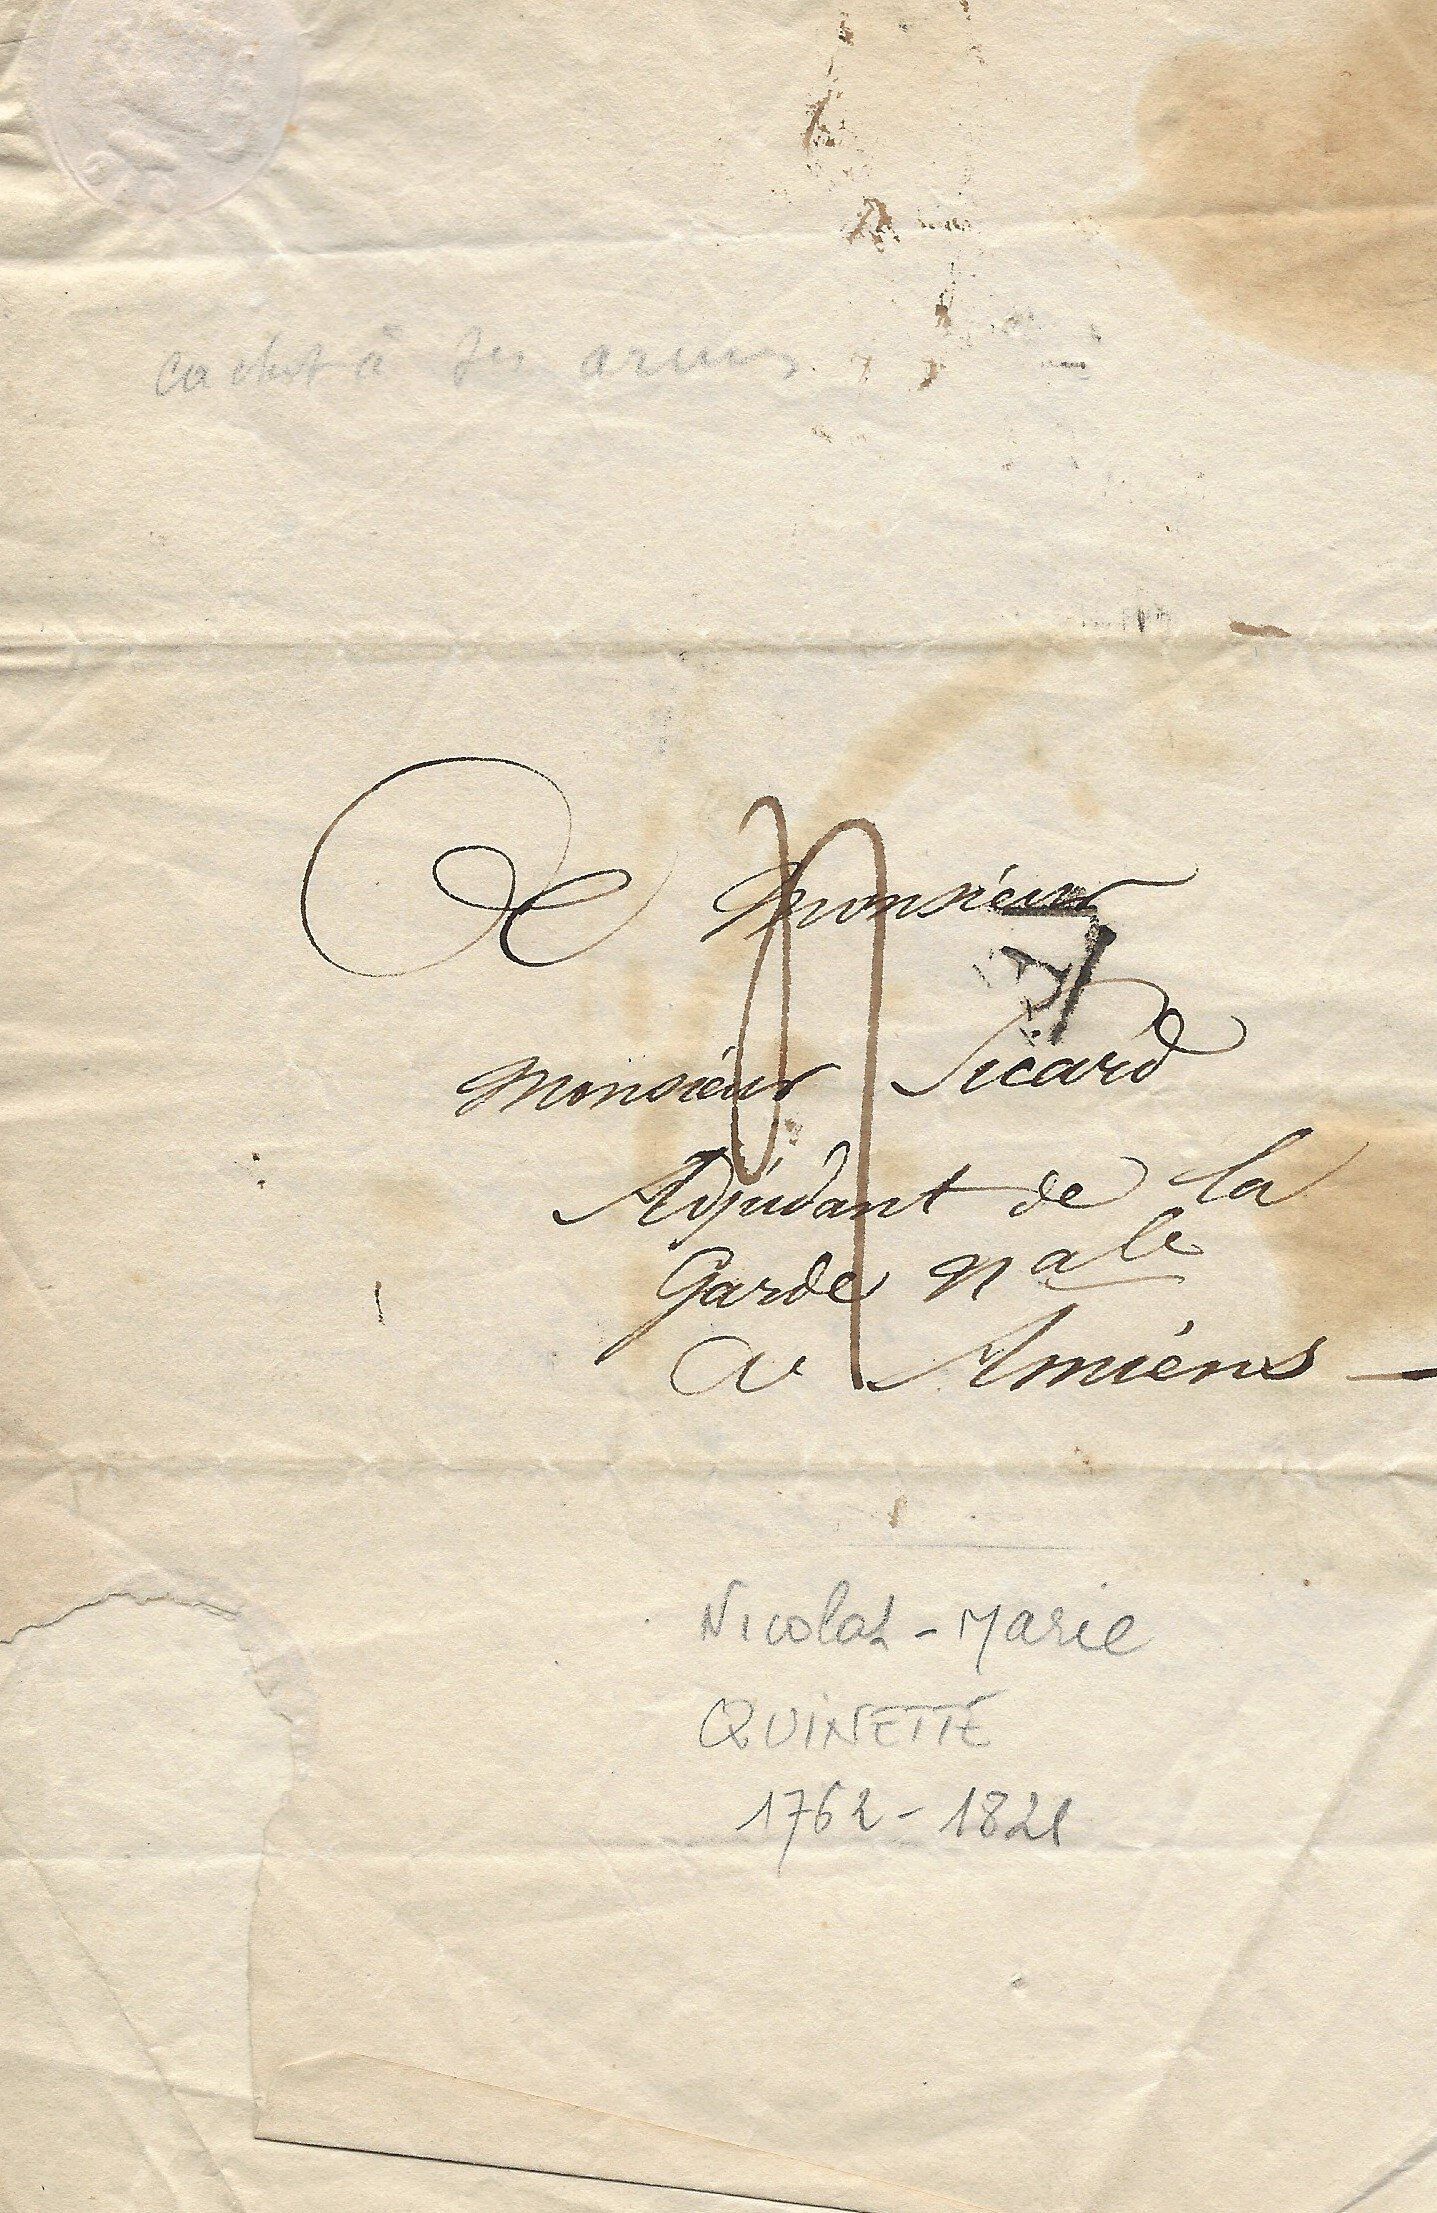 cachet à ses armes
A Monsieur
Monsieur Sicard
Adjudant de la
Garde Nale
a Amiéns
Nicolas-Marie
QUINETTE
1762-1821